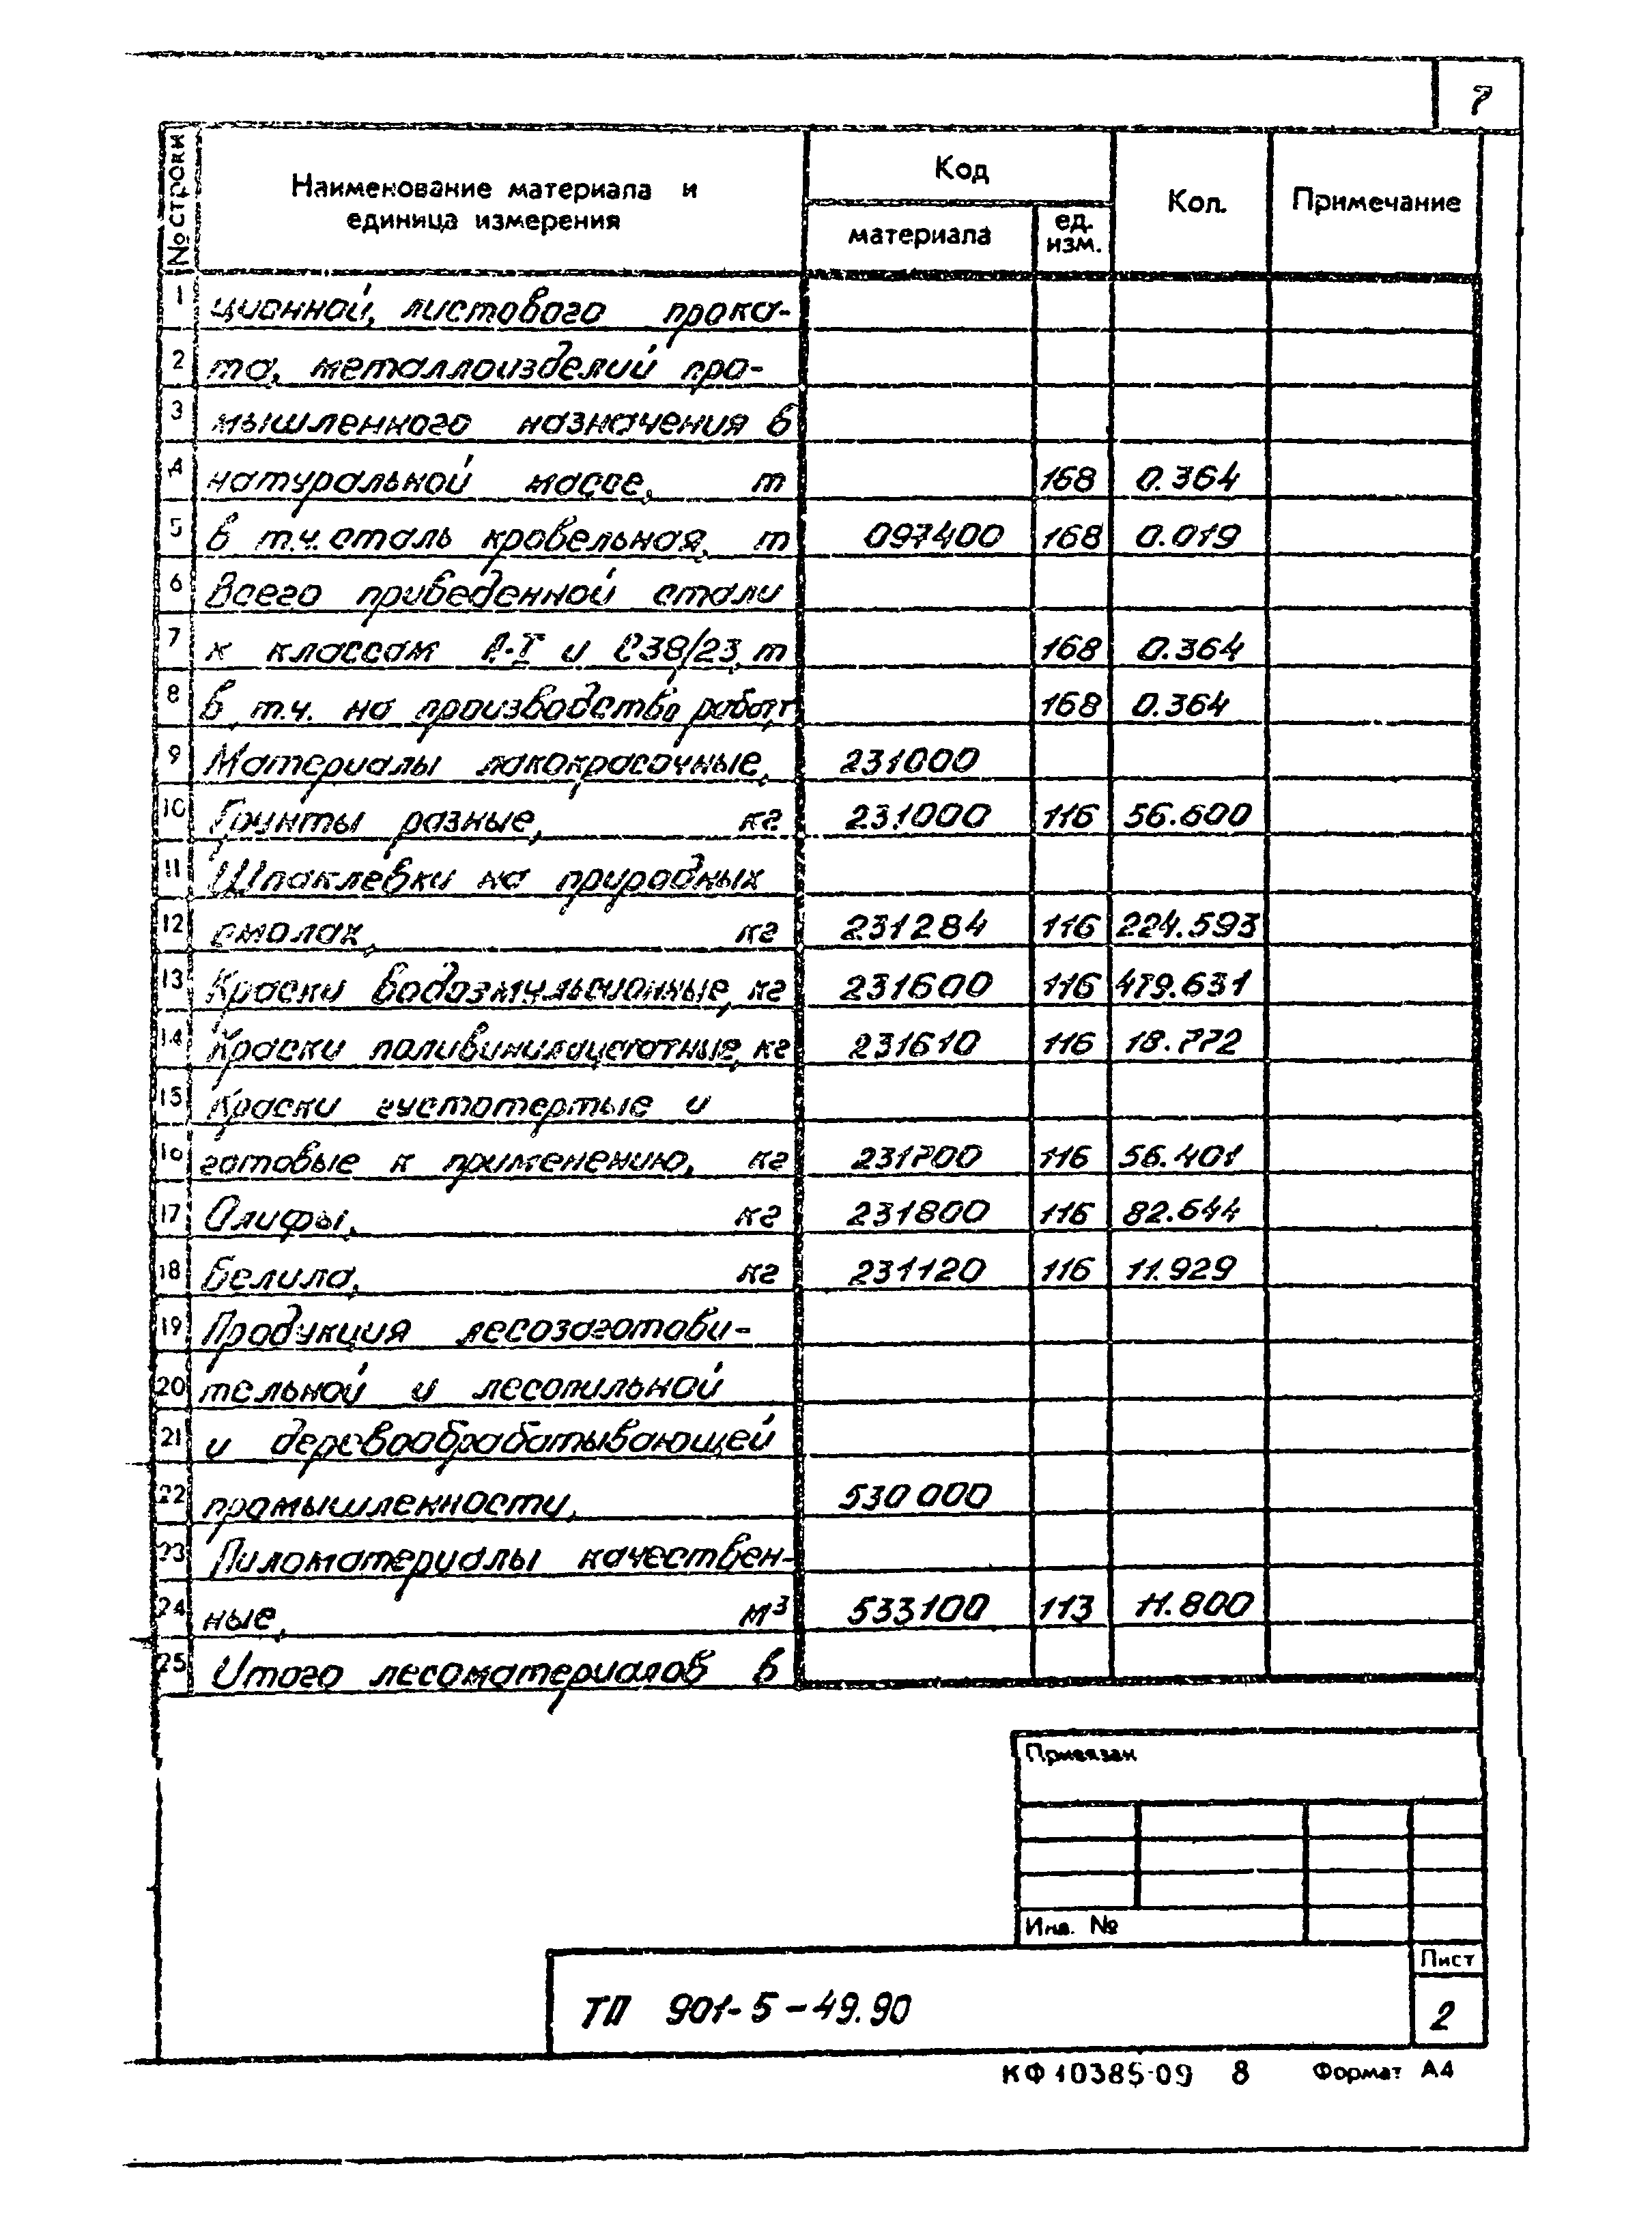 7
№ строки
Наименование материала и единица измерения
Код
материала
ед. изм.
Кол.
Примечание
1 ционной, листового прока-
2 та, металлоизделий про-
3 мышленного назначения в
4 натуральной массе, т 168 0.364
5 в т.ч. сталь кровельная, т 097400 168 0.019
6 Всего приведенной стали
7 к классам А-I и С38/23, т 168 0.364
8 в т.ч. на производство работ, т 168 0.364
9 Материалы лакокрасочные, 231000
10 Грунты разные, кг 231000 116 56.600
11 Шпаклевки на природных
12 смолах, кг 231284 116 224.593
13 Краски водоэмульсионные, кг 231600 116 479.631
14 Краски поливинилацетатные, кг 231610 116 18.772
15 Краски густотертые и
16 готовые к применению, кг 231700 116 56.401
17 Олифы, кг 231800 116 82.644
18 Белила, кг 231120 116 11.929
19 Продукция лесозаготови-
20 тельной и лесопильной
21 и деревообрабатывающей
22 промышленности, 530 000
23 Пиломатериалы качествен-
24 ные, м³ 533100 113 11.800
25 Итого лесоматериалов в
Привязан
Инв. №
ТП 901-5-49.90
Лист
2
КФ 10385-09 8 Формат А4